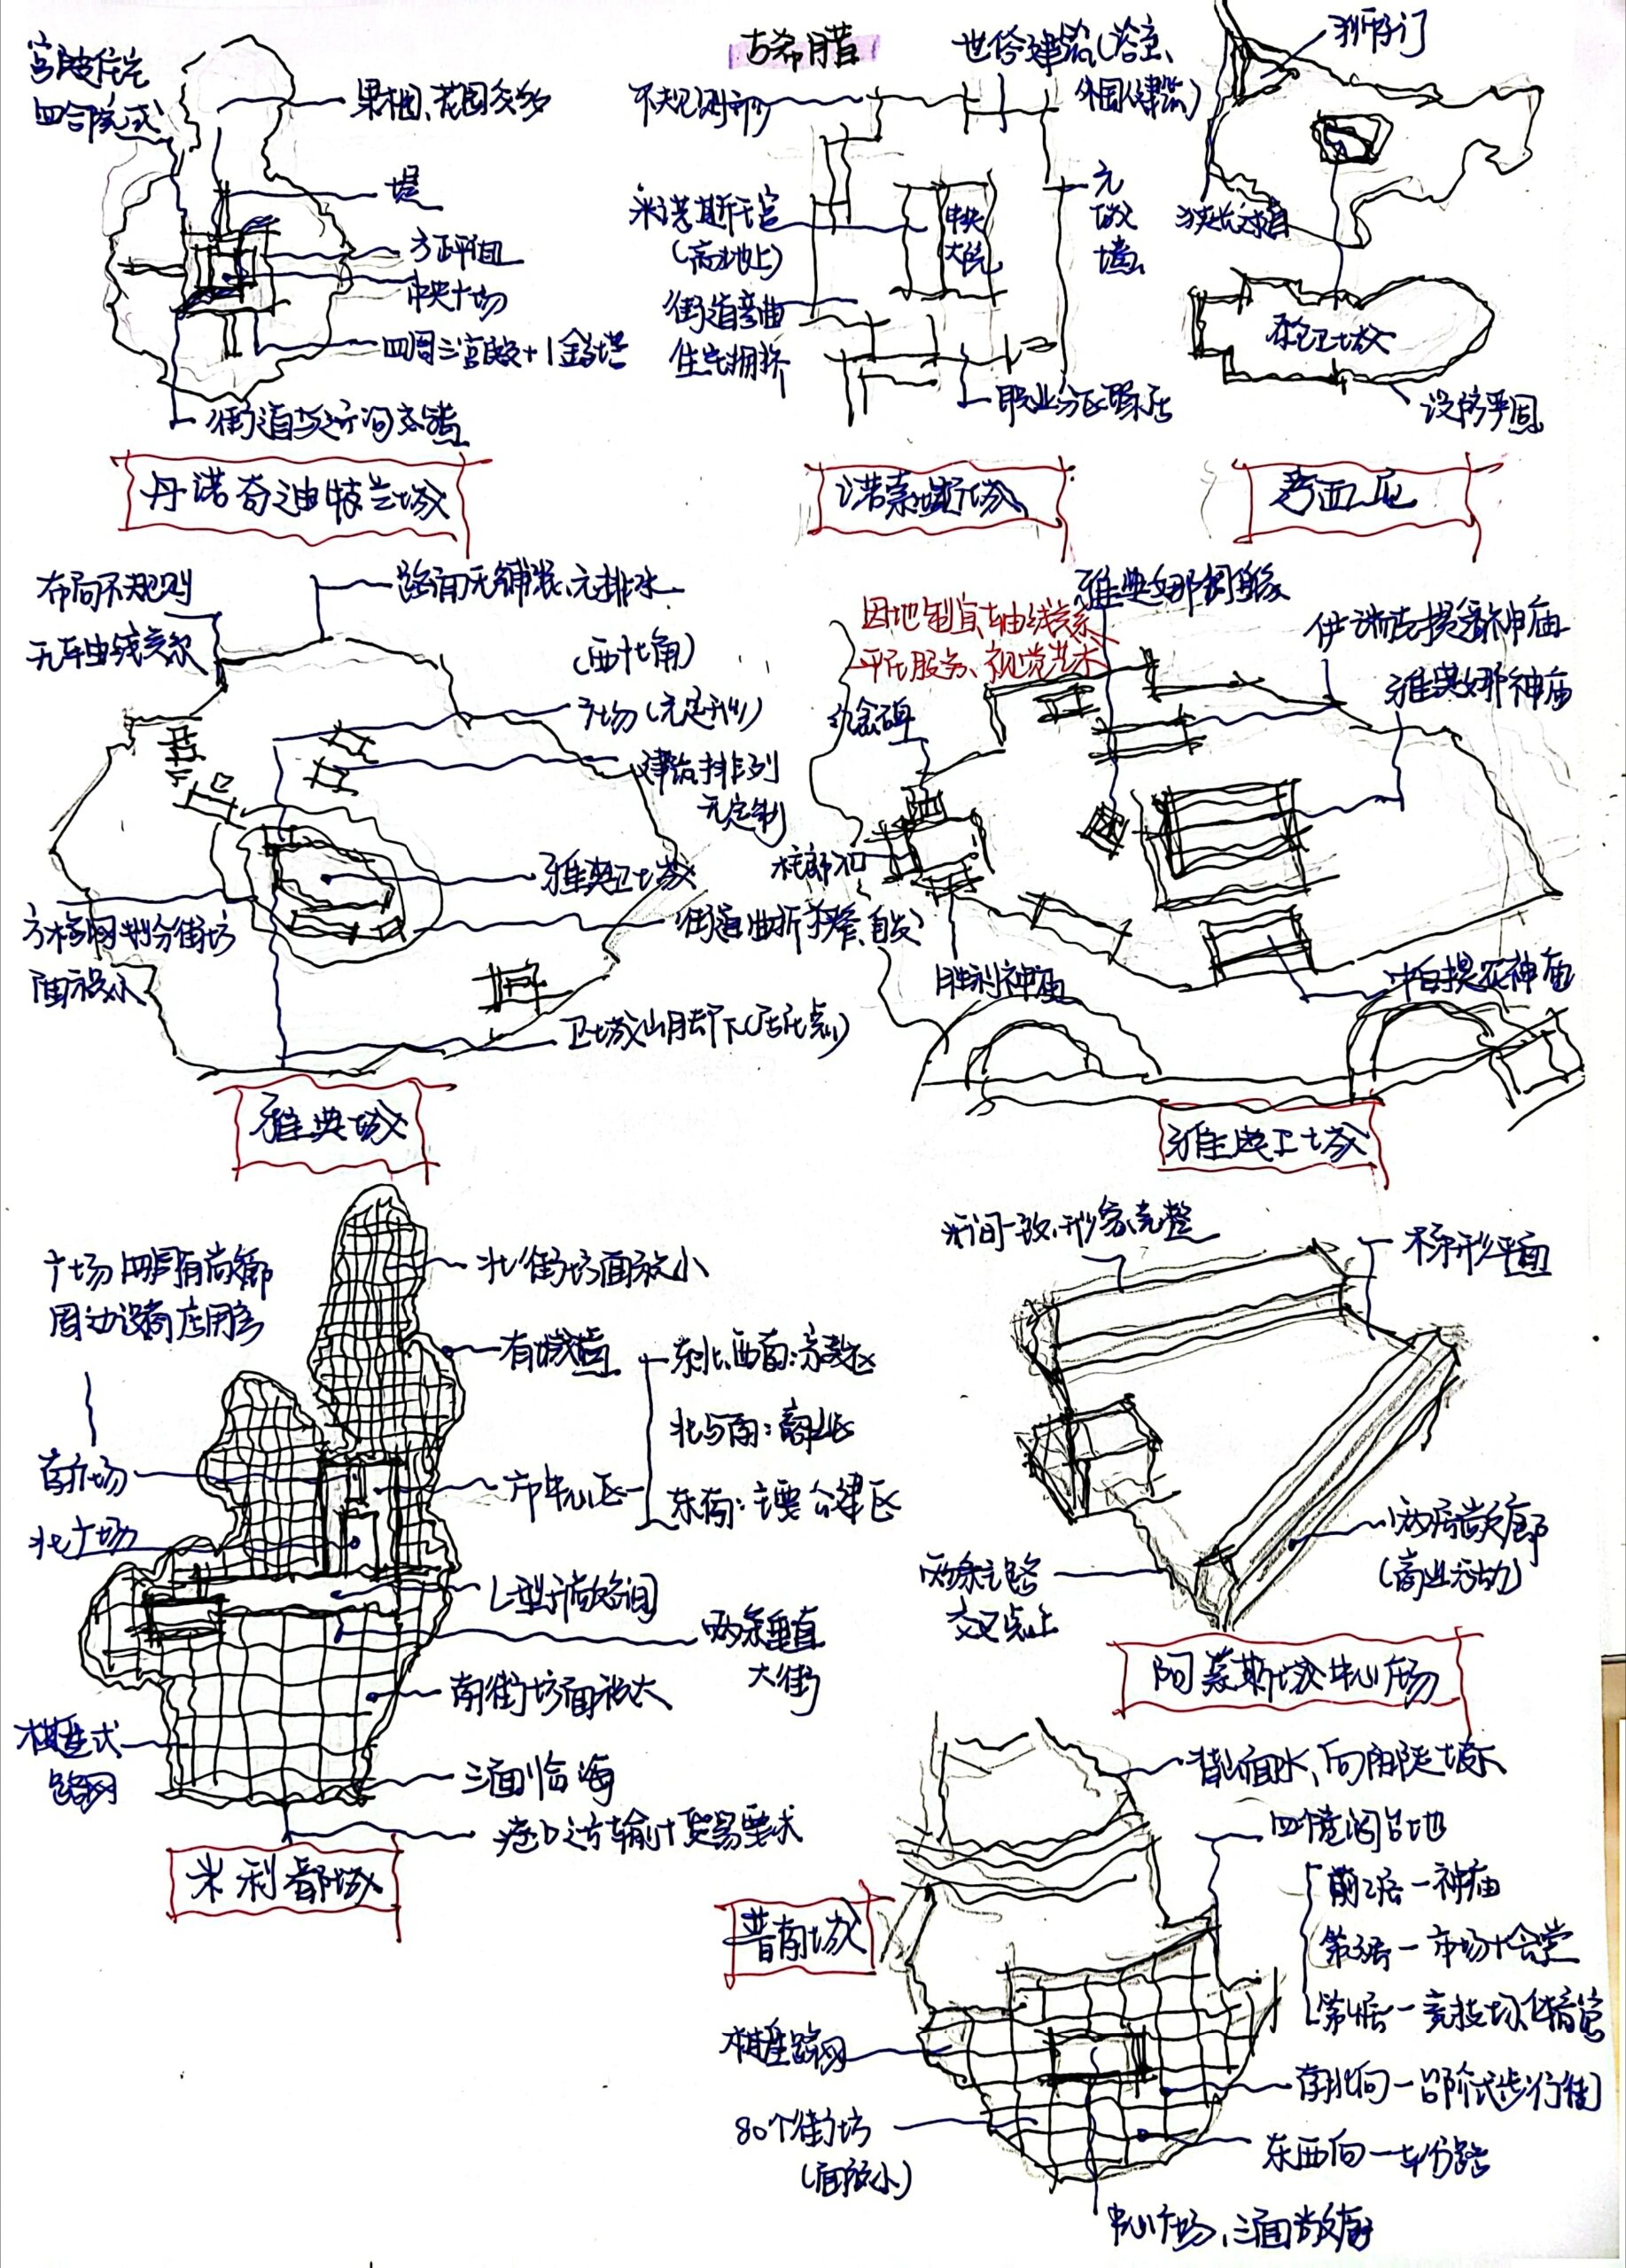 宫殿住宅
四合院式
果树、花园众多
堤
方正平面
中央广场
四周三宫殿+1金字塔
丹诺奇迪特兰城
古希腊
世俗建筑(浴室、
外国人建筑)
不规则形
米诺斯王宫
(高地上)
中央
大院
无
城
墙
街道弯曲
住宅拥挤
职业分区聚居
诺索斯城
狮子门
卫城
设防平面
迈西尼
布局不规则
无轴线关系
路面无铺装、无排水
(西北角)
广场(无定形)
建筑排列
无定制
雅典卫城
方格网划分街坊
面积小
街道曲折狭窄、自发
卫城山脚下(居民点)
雅典城
因地制宜、轴线关系
平民服务、视觉艺术
雅典娜铜像
伊瑞克提翁神庙
雅典娜神庙
纪念碑
胜利神庙
雅典卫城
广场四周有敞廊
周边设商店用房
北街坊面积小
有城墙
东北、西南:宗教区
北与南:商业区
东南:主要公建区
南广场
北广场
市中心区
L型开敞空间
两条垂直
大街
南街坊面积大
棋盘式
路网
三面临海
港口运输+贸易要求
米利都城
空间一致、形象完整
梯形平面
两层敞廊
(商业活动)
两条道路
交叉点上
阿索斯城中心广场
背山面水、向阳陡坡
四个宽阔台地
第3层—市场+会堂
第4层—竞技场、体育馆
普南城
棋盘路网
80个街坊
(面积小)
南北向—台阶式步行街
东西向—车行路
中心广场、三面敞廊